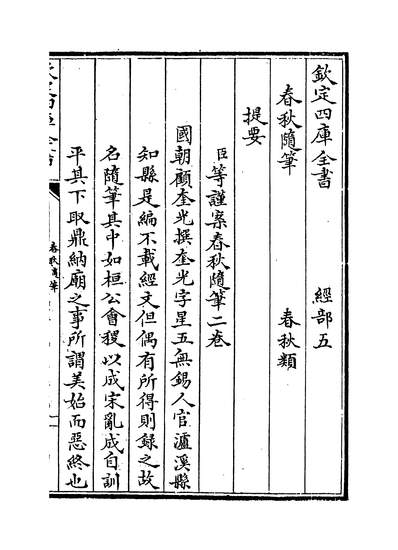 欽定四庫全書 經部五
春秋隨筆 春秋類
提要
臣等謹案春秋隨筆二卷
國朝顧奎光撰奎光字星五無錫人官瀘溪縣
知縣是編不載經文但偶有所得則録之故
名隨筆其中如桓公會稷以成宋亂成自訓
平其下取鼎納廟之事所謂美始而惡終也
春秋隨筆